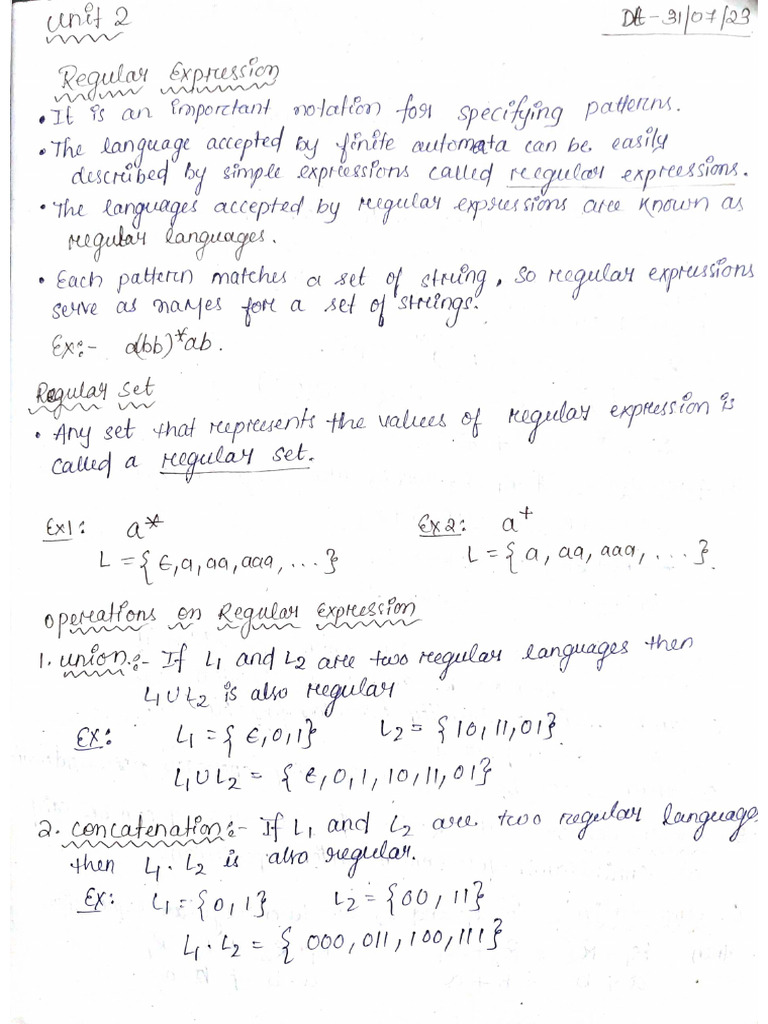 Unit 2
Dt - 31/07/23
Regular Expression
• It is an important notation for specifying patterns.
• The language accepted by finite automata can be easily
described by simple expressions called regular expressions.
• The languages accepted by regular expressions are known as
regular languages.
• Each pattern matches a set of string, so regular expressions
serve as names for a set of strings.
Ex:- a(bb)*ab.
Regular Set
• Any set that represents the values of regular expression is
called a regular set.
Ex1: a* Ex2: a⁺
L = {ϵ, a, aa, aaa, ...} L = {a, aa, aaa, ...}.
Operations on Regular Expression
1. Union:- If L₁ and L₂ are two regular languages then
L₁∪L₂ is also regular
Ex: L₁ = {ϵ,0,1} L₂ = {10,11,01}
L₁∪L₂ = {ϵ,0,1,10,11,01}
2. Concatenation:- If L₁ and L₂ are two regular languages
then L₁.L₂ is also regular.
Ex: L₁={0,1} L₂={00,11}
L₁.L₂ = {000,011,100,111}